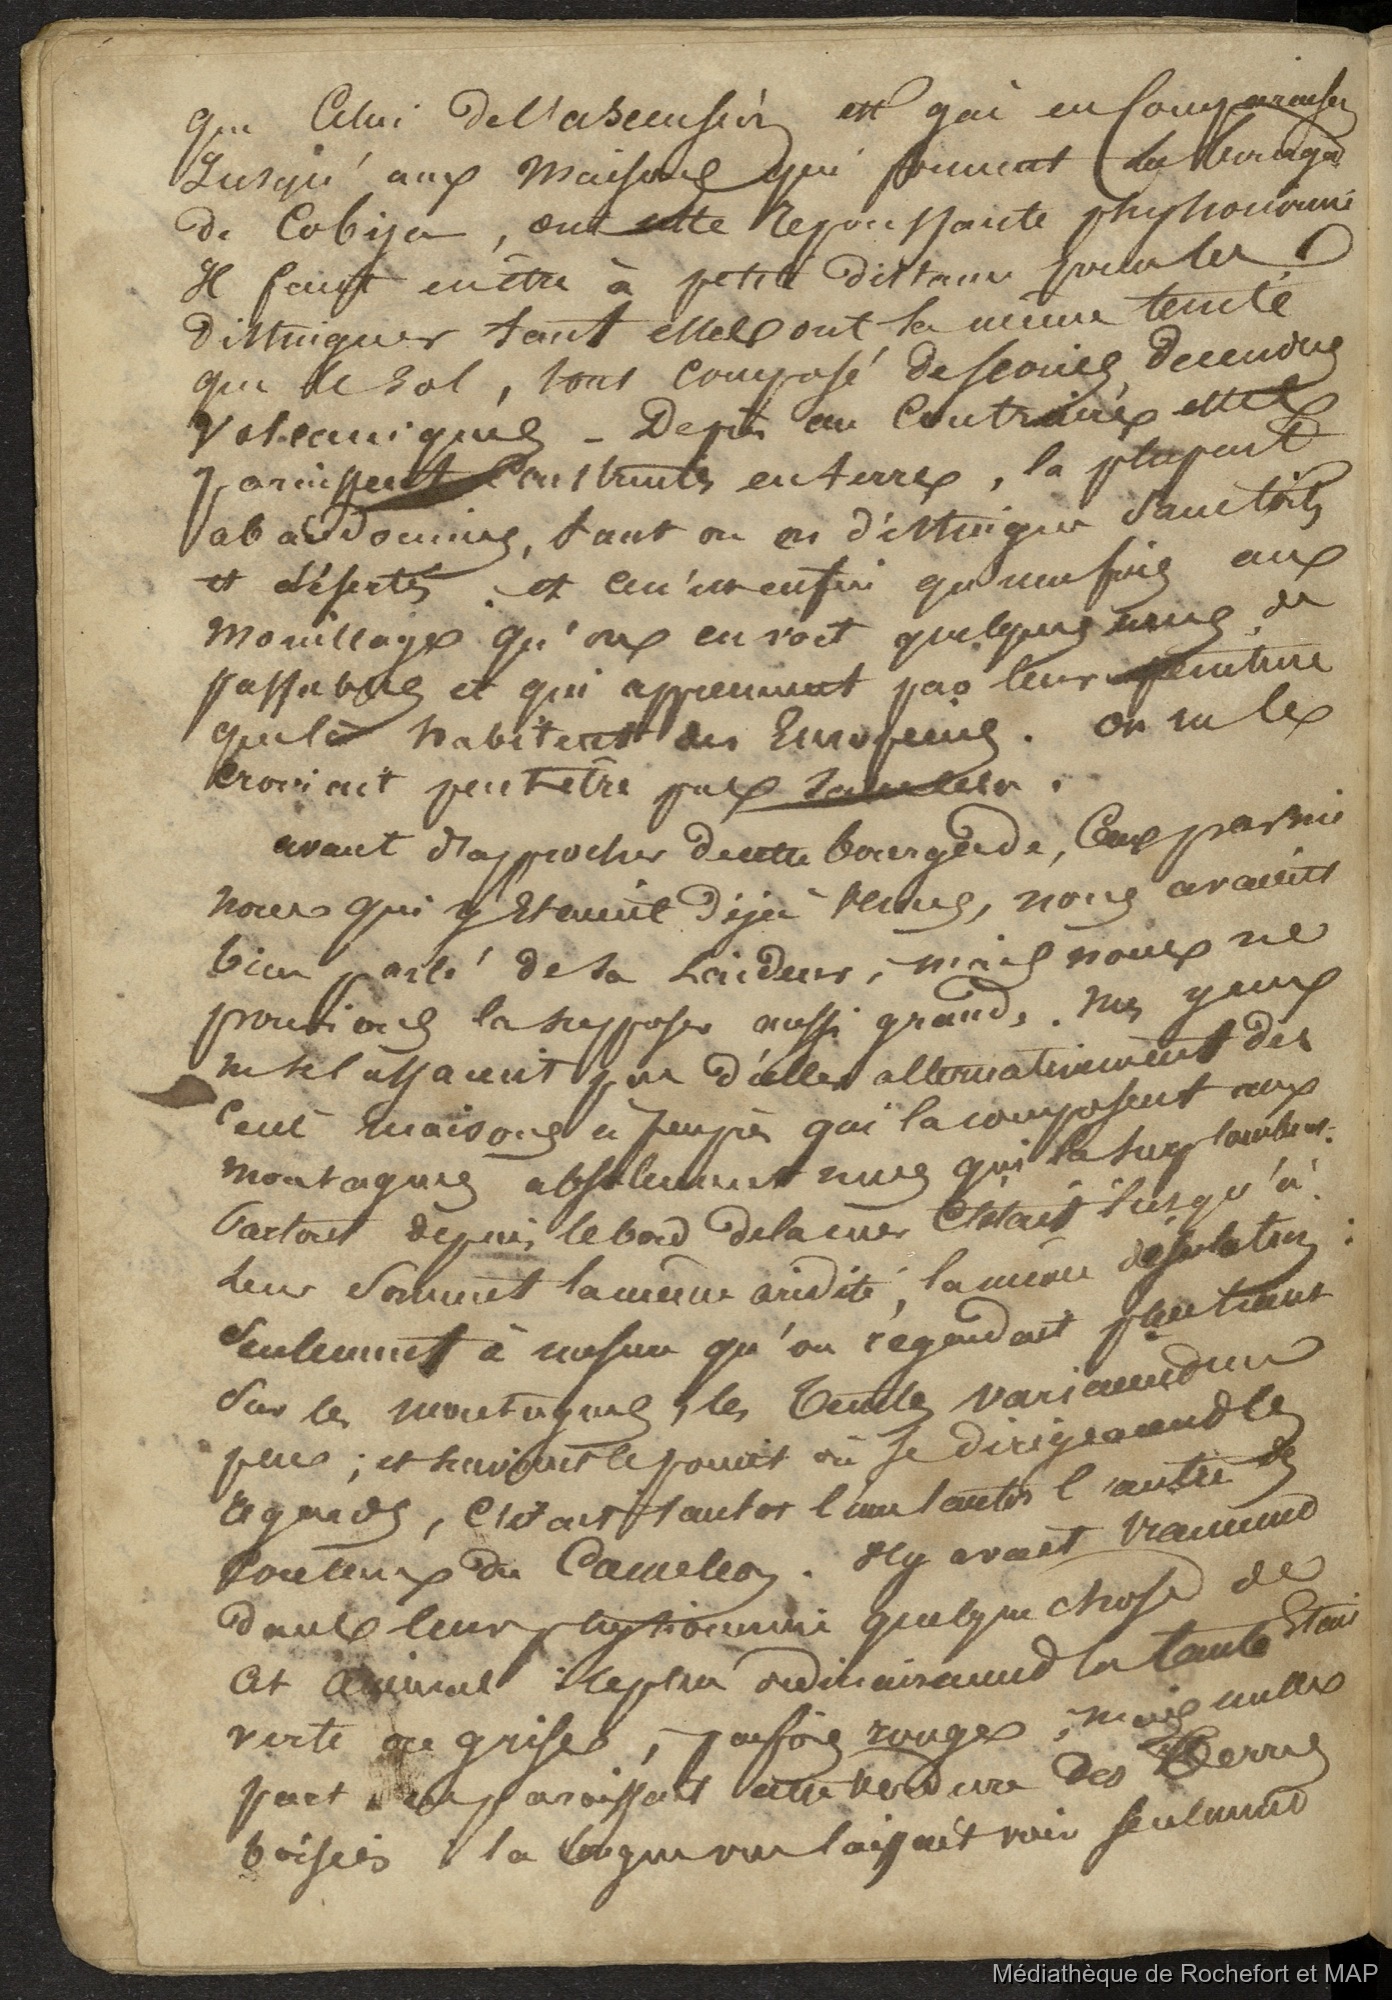 que Celui de l'ascension est gai en Comparaison
Jusqu'aux Maisons qui forment la bourgade
de Cobija, ont cette repoussante physionomie
Il faut en être à petite distance pour les
distinguer tant elles ont la même teinte
que le sol, tout composé de scories, de cendres
Volcaniques – De près au Contraire elles
paroissent Construites en terre, la plupart
abandonnées, tant on en distingue sans toits
et désertes. et ce n'est enfin qu'une fois aux
Mouillage qu'on en voit quelques unes de
passables et qui apprennent par leur peinture
que là habitent des Européens. on ne le
croirait peut être pas sans cela.
avant d'approcher de cette bourgade, Ceux parmi
nous qui y Etaient déja venus, nous avaient
bien parlé de sa Laideur, mais nous ne
pouvions la supposer aussi grande. Nos yeux
ne se lassaient pas d'aller alternativement des
Cent maisons à peu près qui la composent aux
Montagnes absolument nues qui la surplombent.
Partout depuis le bord de la mer C'était Jusqu'à
leur Sommet la même aridité, la même désolation ;
Seulement à mesure qu'on regardait
Sur les montagnes, les Teintes variaient un
peu ; et suivant le point où se dirigeaient les
regards, C'était tantot l'une tantot l'autre des
Couleurs du Caméléon. Il y avait vraiment
dans leur physionomie quelque chose de
cet animal ordinairement la teinte Etait
verte ou grise, parfois rouge ; mais nulle
part ne paroissait cette verdure des Terres
boisées. la longue vue laissait voir seulement
Médiathèque de Rochefort et MAP